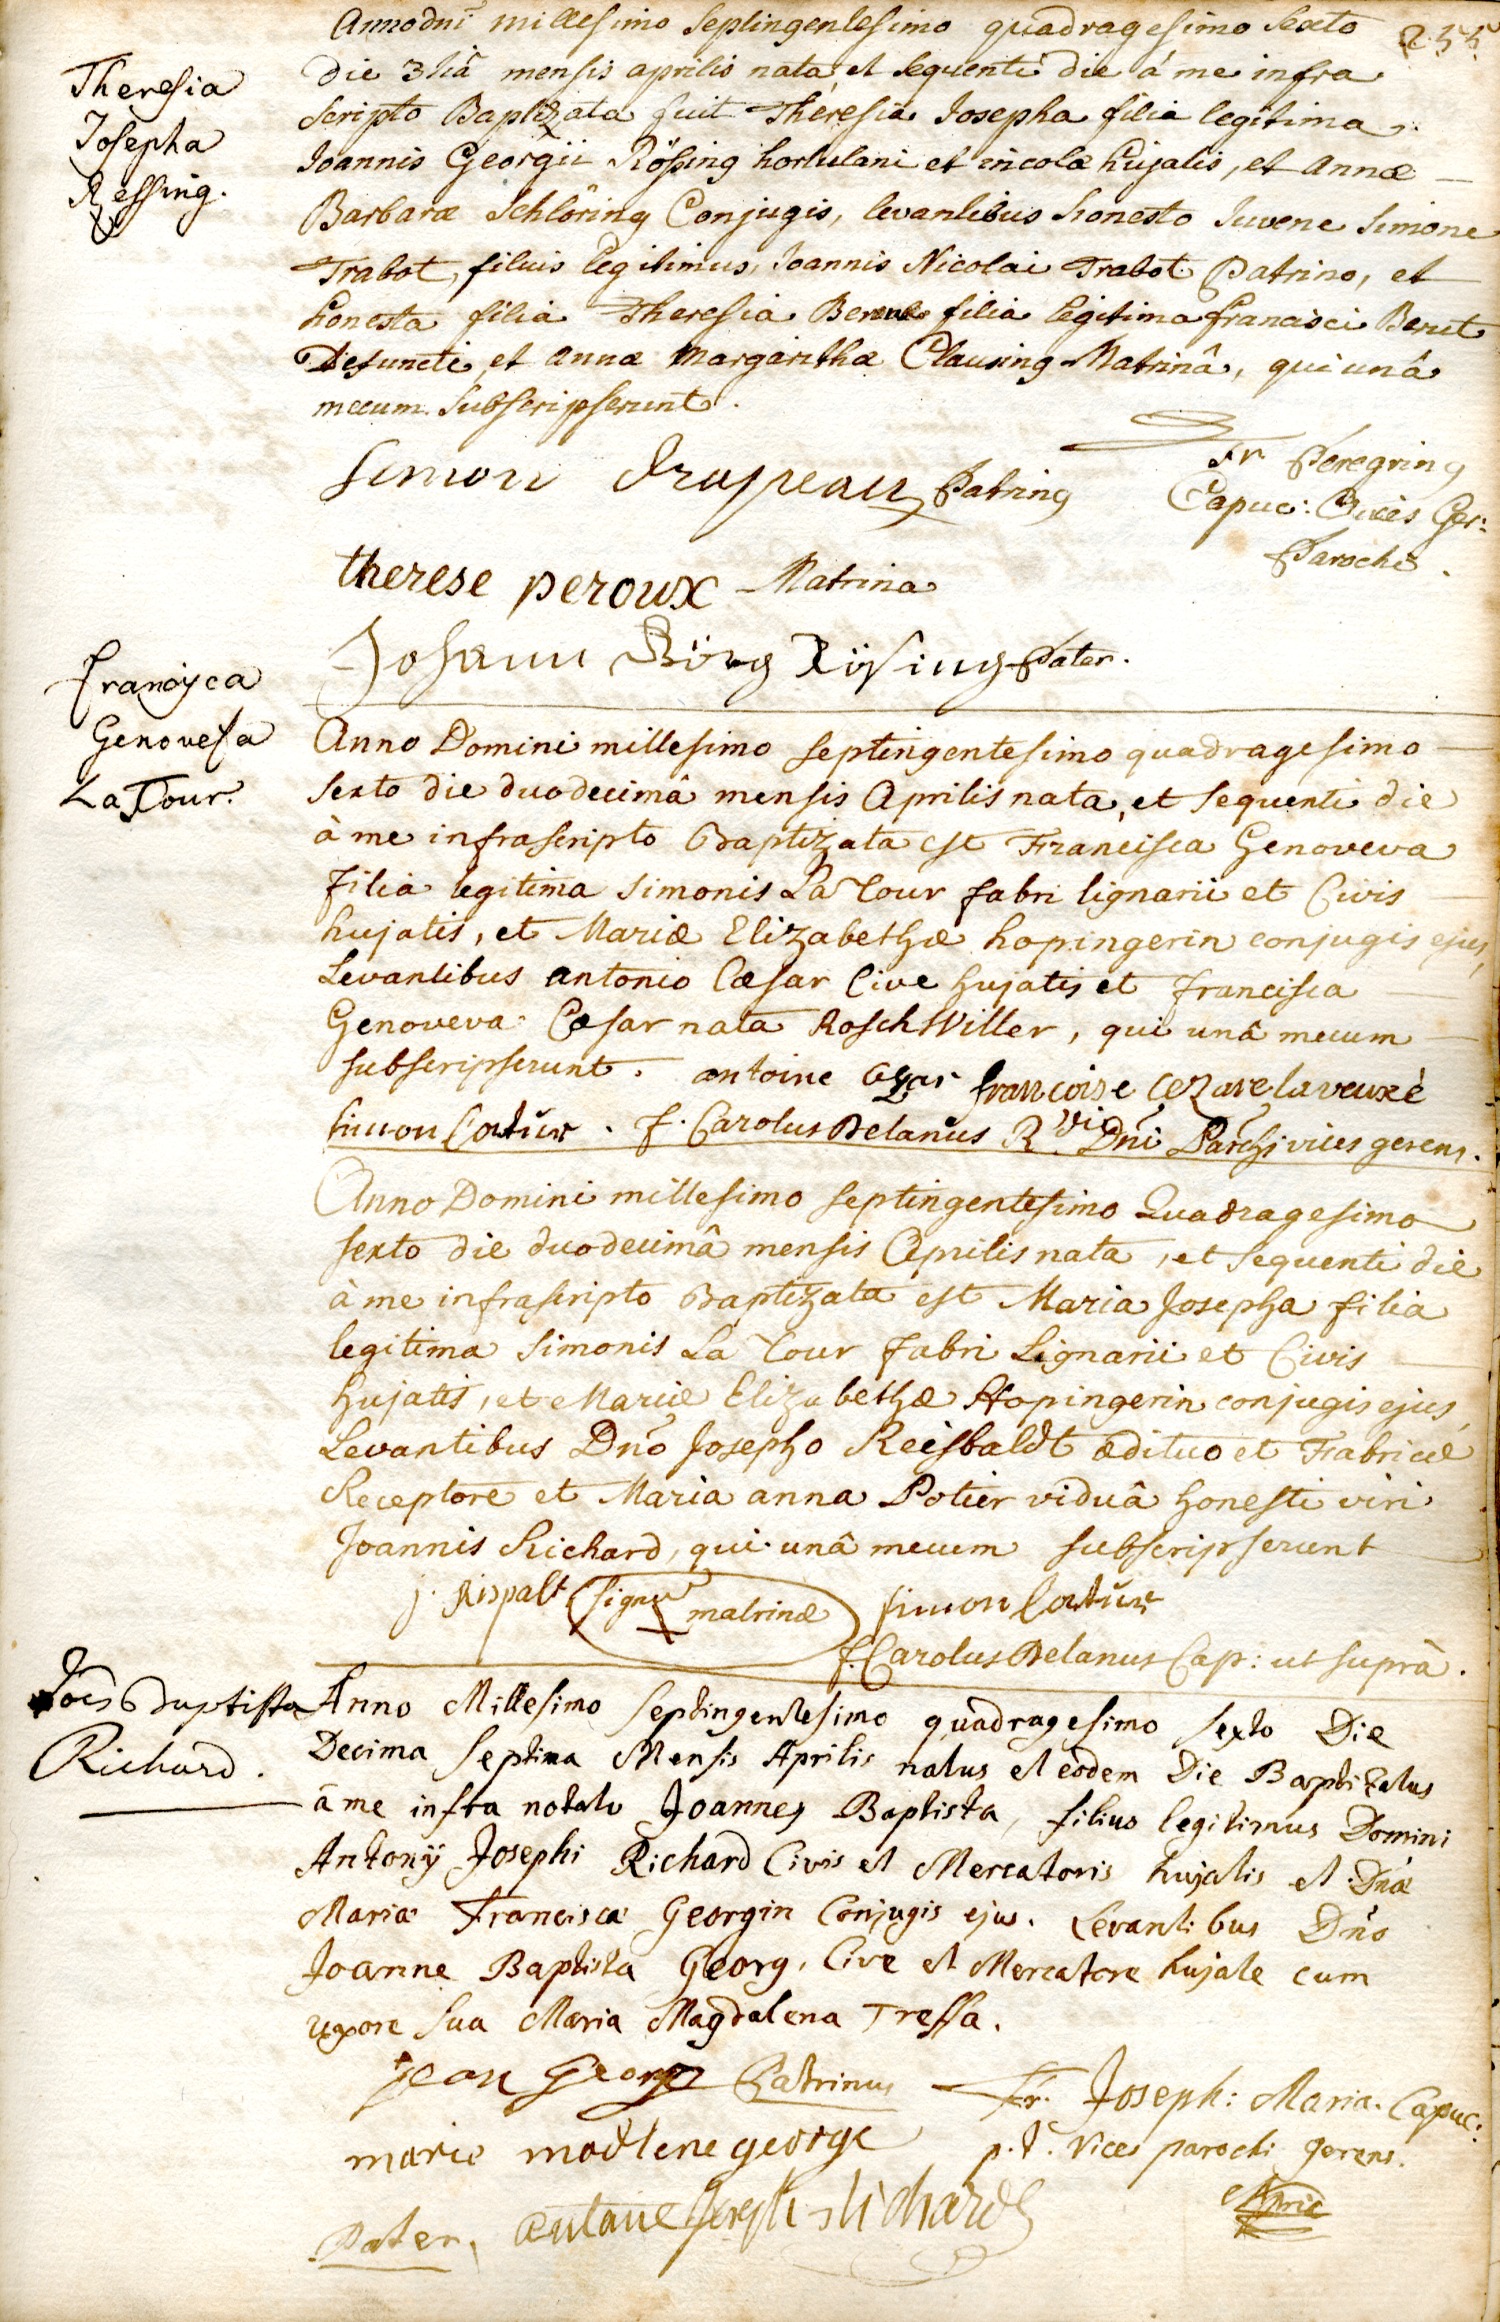 235
Anno dni millesimo septingentesimo quadragesimo sexto
Theresia
Josepha
Ressing.
Die 3tiâ mensis aprilis nata et sequenti die á me infra
scripto Baptizata fuit Theresia Josepha filia legitima
Joannis Georgii Rössing hortulani et incolæ hujatis, et Annæ
Barbaræ Schlöring Conjugis, levantibus honesto Juvene Simone
Trabot, filius legitimus, Joannis Nicolai Trabot Patrino, et
honesta filia Theresia filia legitima francisci Berut
Defuncti et annæ Margarithæ Clausing Matrinâ, qui unâ
mecum subscripserunt.
Simon Patrinus
Fr Peregrinus
Capuc: Vices Ger:
Parochi.
therese peroux Matrina
Johann Görg Rösing Pater.
francisca
Genovefa
La Tour.
Anno Domini millesimo septingentesimo quadragesimo
sexto die duodecimâ mensis Aprilis nata, et sequenti die
à me infrascripto Baptizata est Francisca Genoveva
filia legitima Simonis La Tour fabri lignarii et Civis
hujatis, et Mariæ Elizabethæ hopingerin conjugis ejus,
Levantibus antonio Cæsar Cive hujatis et francisca
Genoveva Cæsar nata RoschWiller, qui unâ mecum
subscripserunt. antoine francoise cezare laveuxe
simon latur. f. Carolus Delanus R.di Dni Parchi vices gerens.
Anno Domini millesimo septingentesimo Quadragesimo
sexto die duodecimâ mensis Aprilis nata, et sequenti die
à me infrascripto Baptizata est Maria Josepha filia
legitima Simonis La Tour fabri Lignarii et Civis
hujatis, et Mariæ Elizabethæ Hopingerin conjugis ejus,
Levantibus Dno Josepho Reisbaldt ædituo et Fabricæ
Receptore et Maria anna Potier viduâ honesti viri
Joannis Richard, qui unâ mecum subscripserunt
j. Rispalt signu X matrinæ simon latur
f. Carolus Delanus Cap: ut suprà.
Joes Baptista
Richard.
Anno Millesimo Septingentesimo quadragesimo sexto Die
Decima Septima Mensis Aprilis natus et eodem Die Baptizatus
â me infra notato Joannes Baptista, filius legitimus Domini
Antonÿ Josephi Richard Civis et Mercatoris hujatis et Dnæ
Mariæ Franciscæ Georgin Conjugis ejus. Levantibus Dno
Joanne Baptista Georg, Cive et Mercatore hujate cum
uxore sua Maria Magdalena Tressa.
jean George Patrinus
Fr. Joseph: Maria. Capuc:
marie modlene george
p. t. vices parochi gerens.
Pater, antoine joseph richard